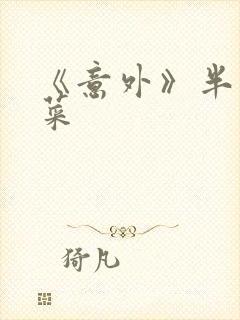 《意外》半
菜
猗凡